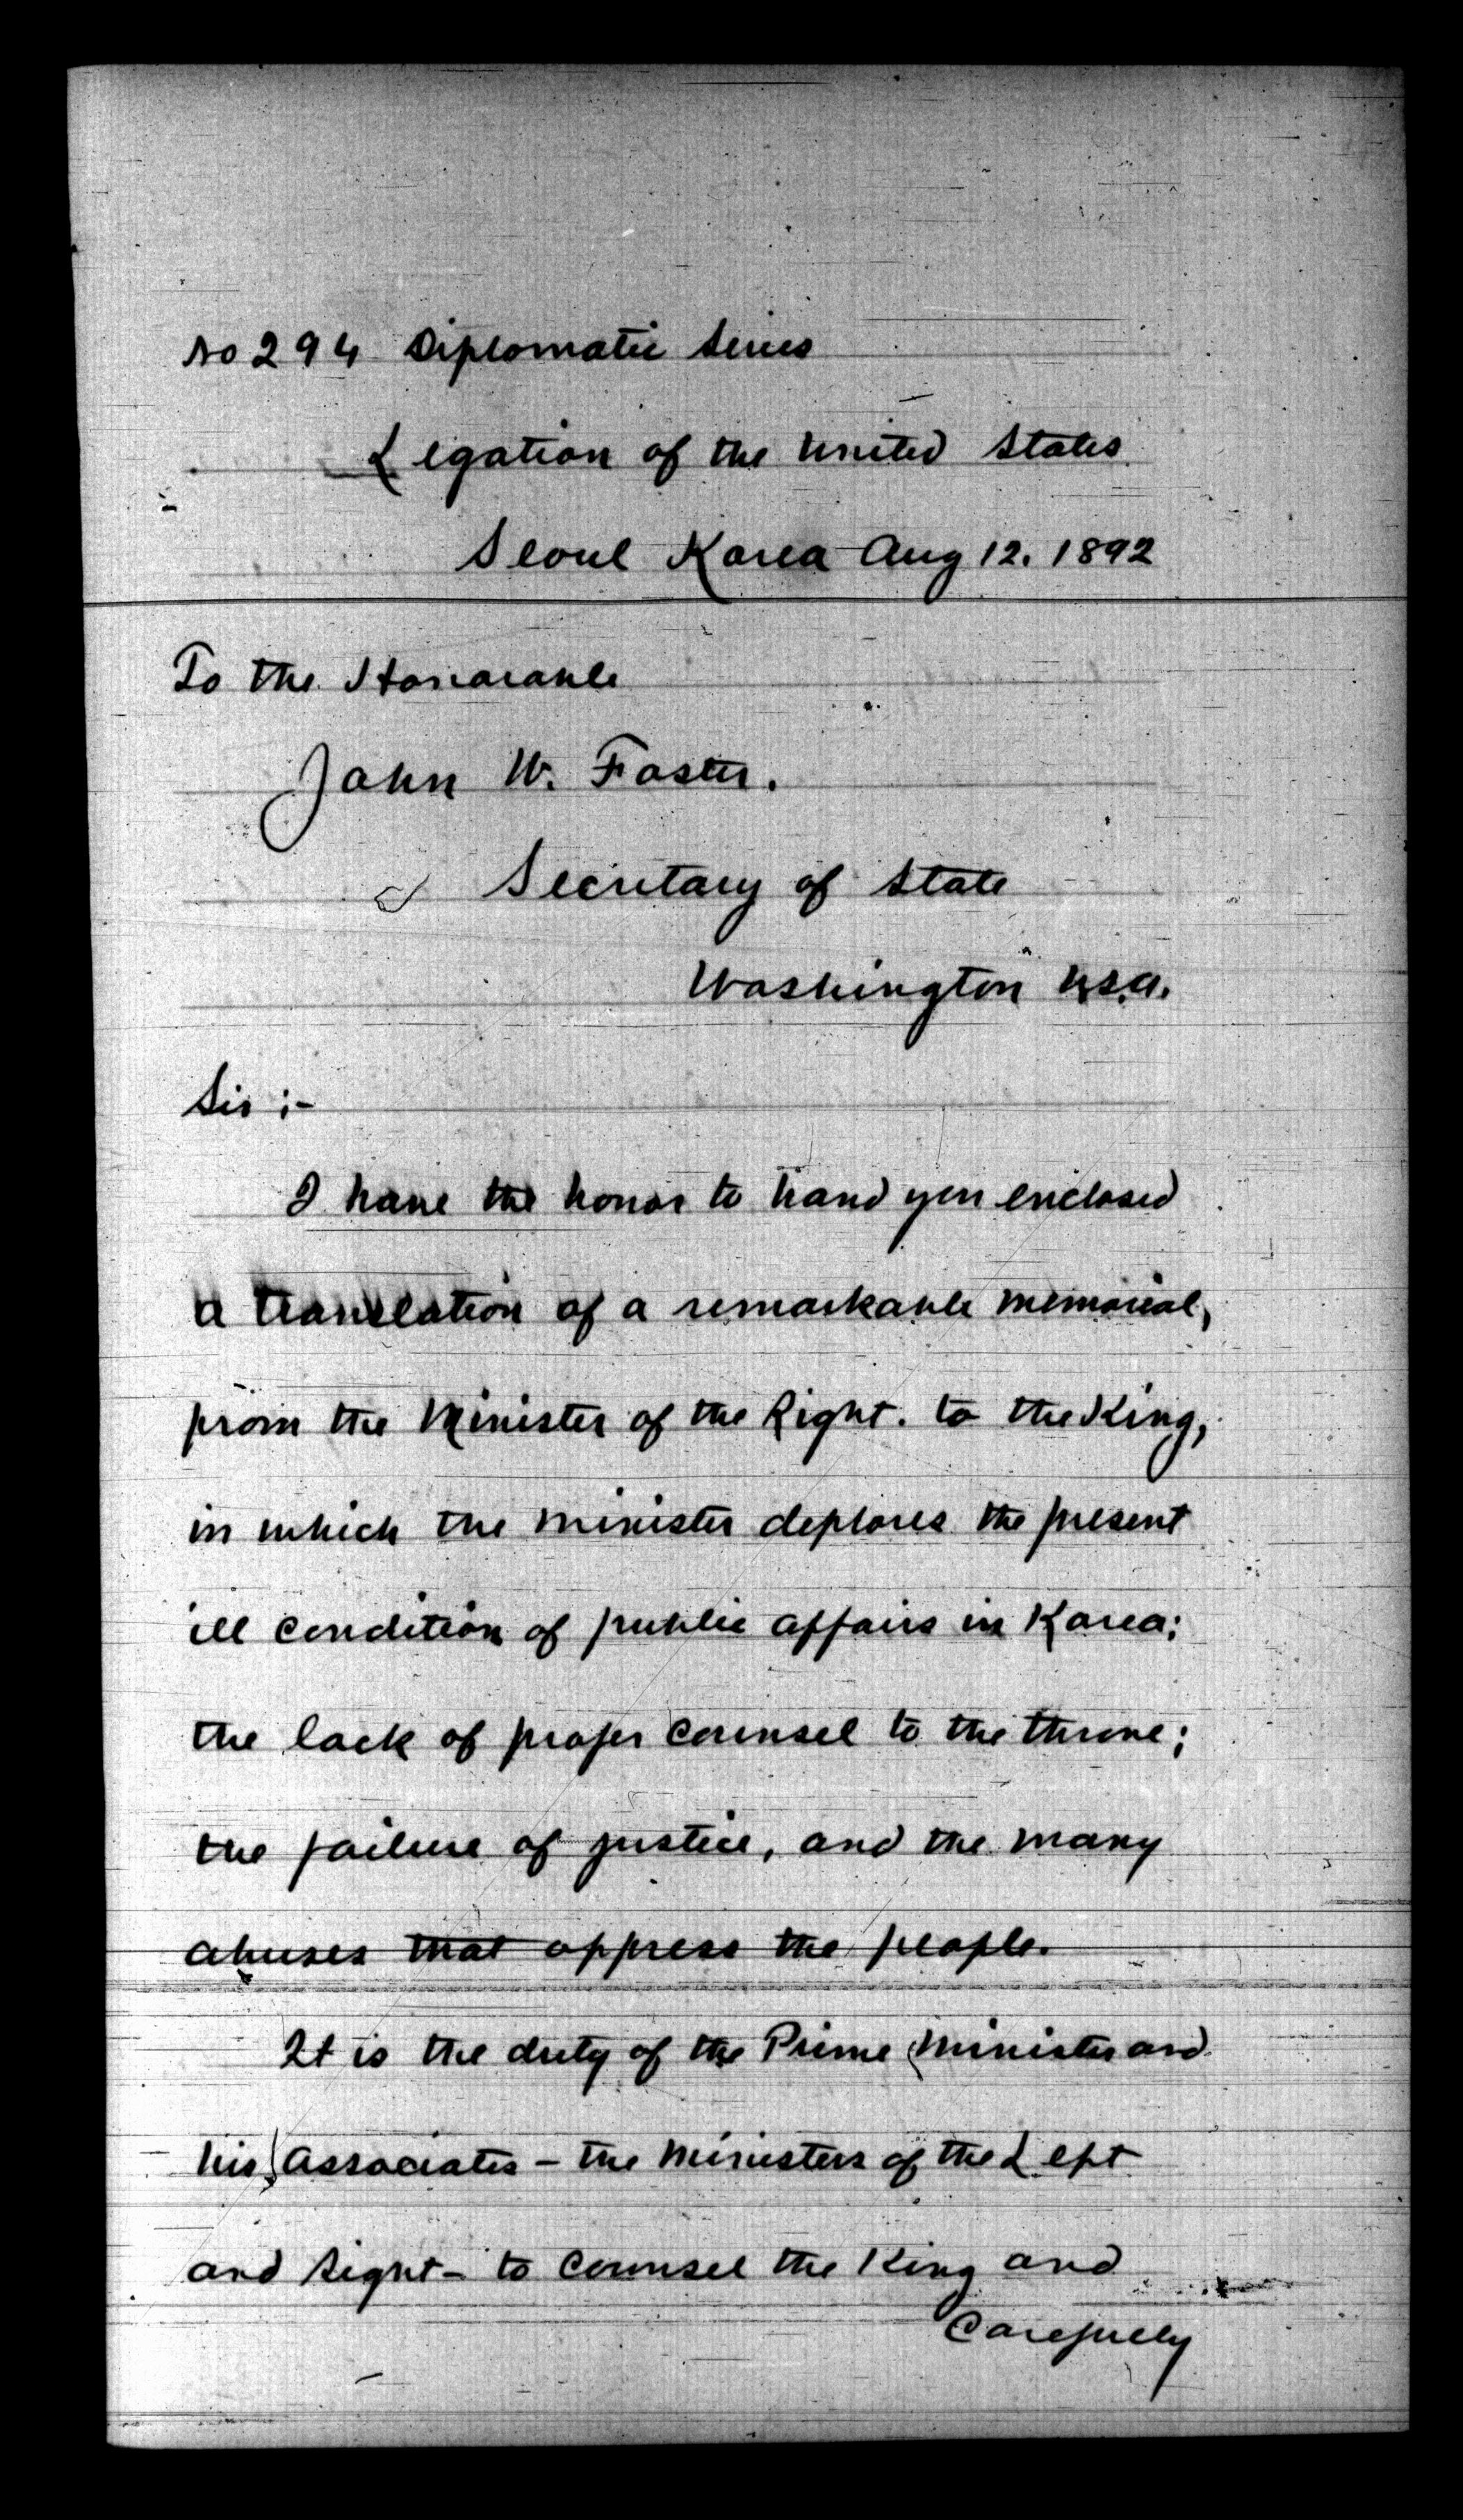 No 294 Diplomatic Series
Legation of the United States
Seoul Korea Aug 12. 1892
To the Honorable
John W. Foster.
Secretary of State
Washington U.S.A.
Sir :-
I have the honor to hand you enclosed
a translation of a remarkable memorial,
from the Minister of the Right. to the King,
in which the minister deplores the present
ill condition of public affairs in Korea;
the lack of proper counsel to the throne;
the failure of justice, and the many
abuses that oppress the people.
It is the duty of the Prime Minister and
his Associates - the Ministers of the Left
and Right - to Counsel the King and
Carefully